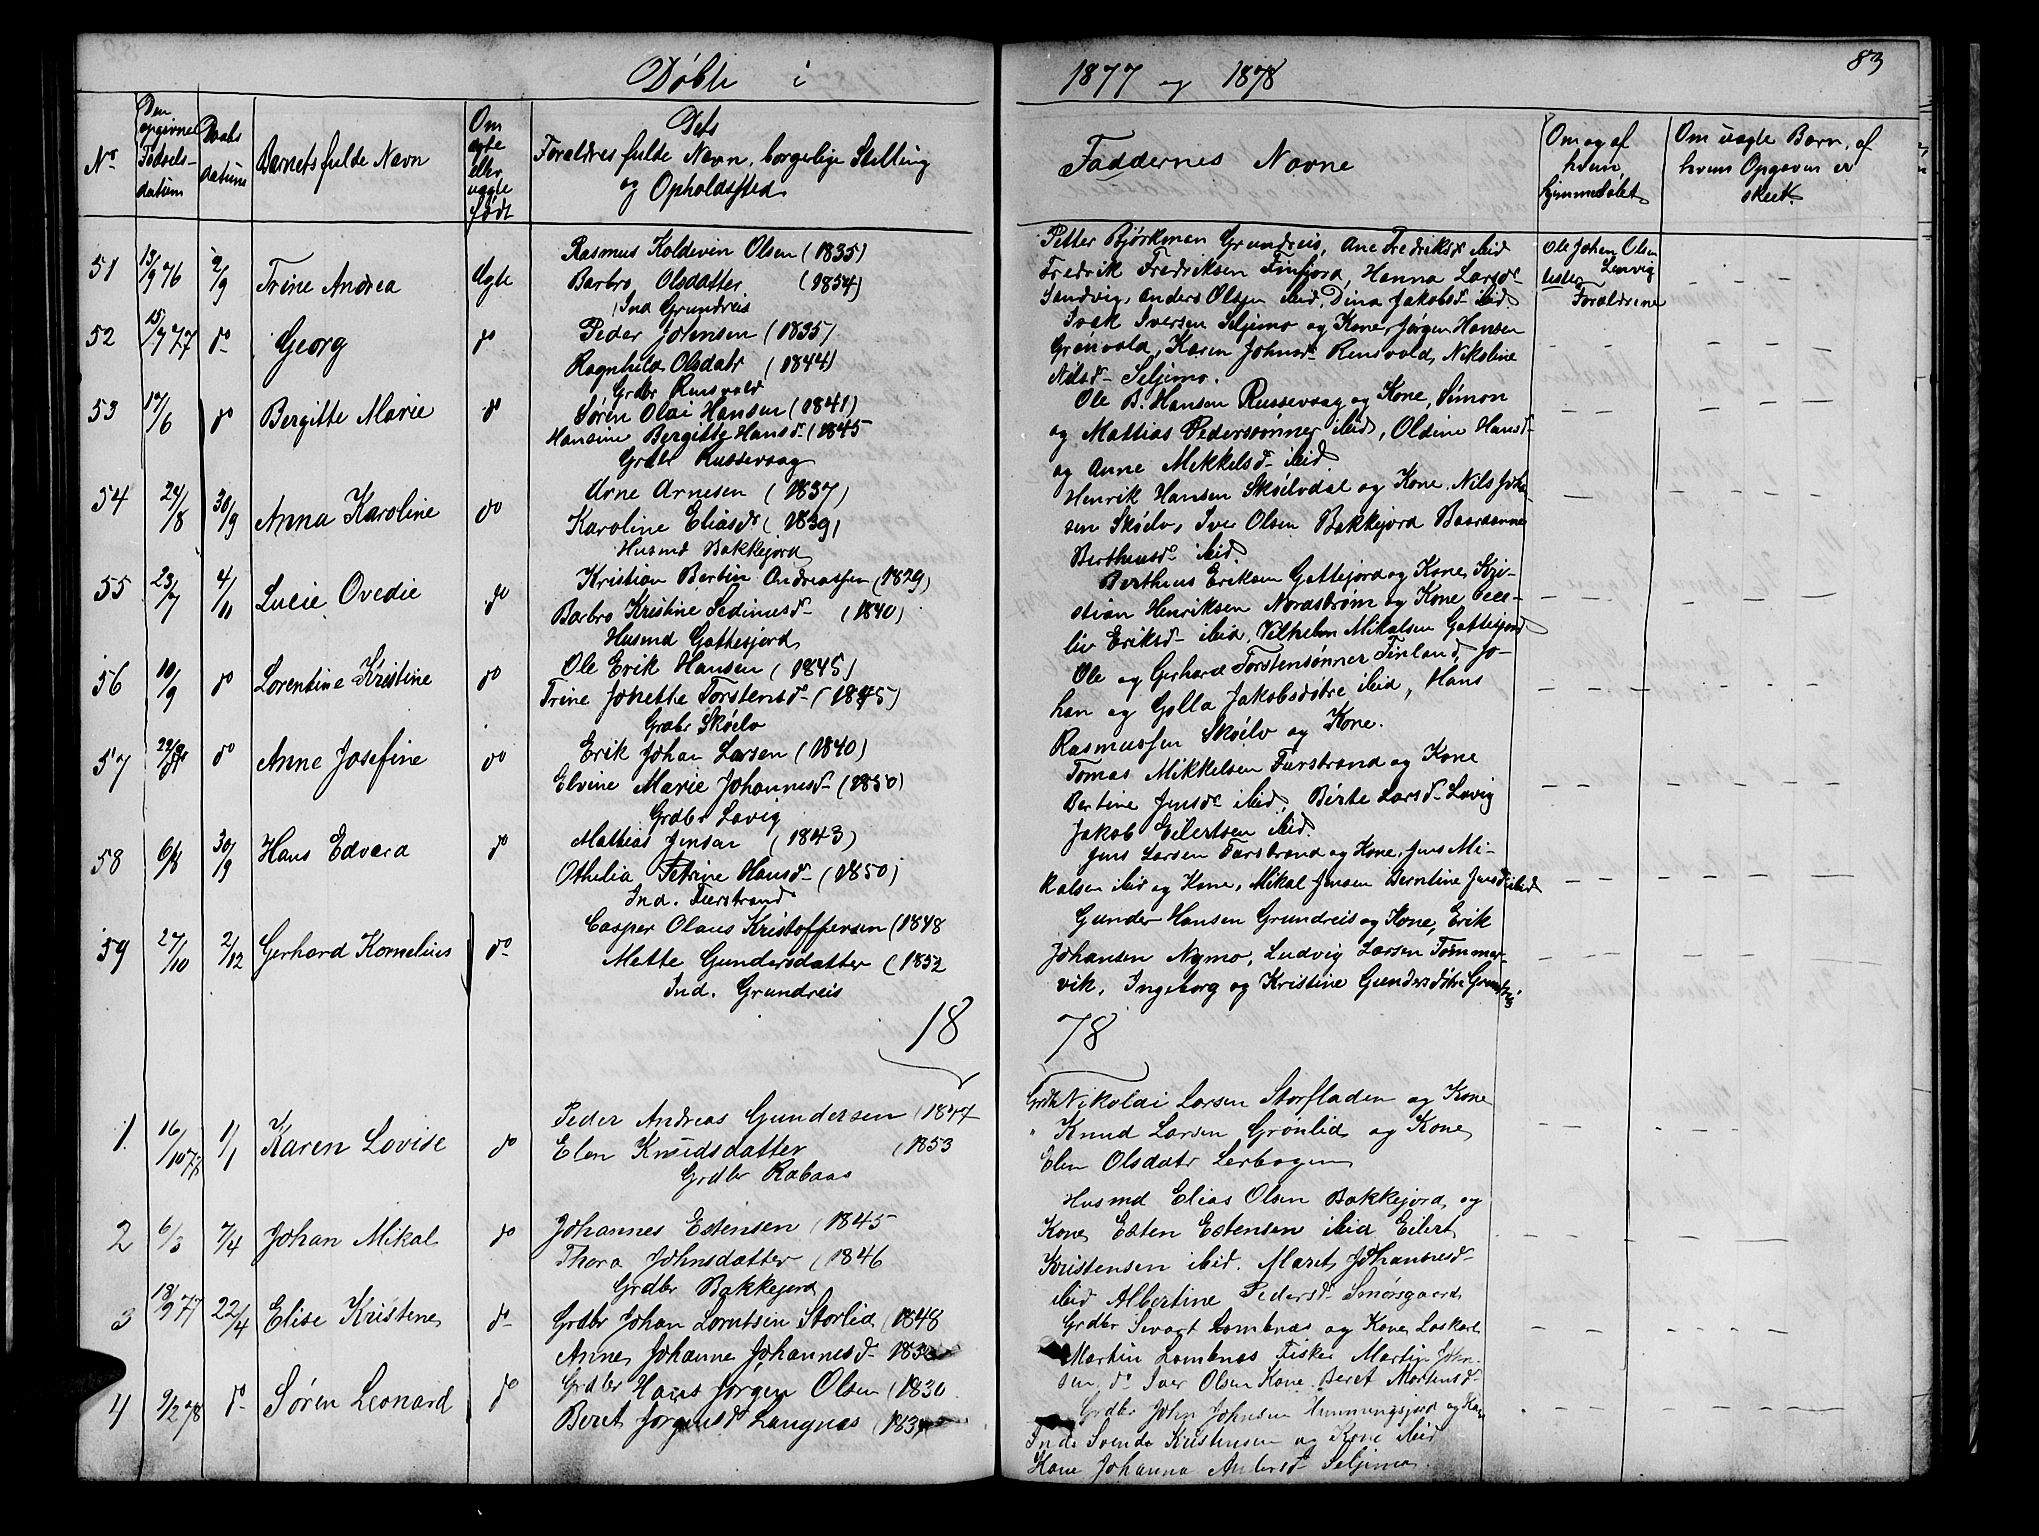 Døbte i 1877 og 1878
83
No
Den opgivne Fødsels-datum
Daabs datum
Barnets fulde Navn
Om ægte eller uægte født
Dets Forældres fulde Navn, borgelige Stilling og Opholdssted
Faddernes Navne
Om og af hvem hjemmedøbt
Om uægte Barn, af hvem Opgaven er skeet.
51 13/9 76 2/9 Trine Andrea ægte
Rasmus Koldevin Olsen (1835)
Barbro Olsdatter (1854)
Ind Grundreis
Petter Bjørkman Grundreis, Ane Fredriksd ibid
Fredrik Fredriksen Finfjord, Hanna Larsd
Sandvig, Anders Olsen ibid, Dina Jakobsd ibid
Ole Johan Olsen
Lenvig
Forældrene
52 15/7 77 do Georg do
Peder Johnsen (1835)
Ragnhild Olsdatr (1844)
Grdbr Rensvold
Isak Iversen Seljemo og Kone, Jørgen Hansen
Grønvold, Karen Johnsd Rensvold, Nikoline
Nilsd Seljemo.
53 17/6 do Bergitte Marie do
Søren Olai Hansen (1841)
Hansine Bergitte Hansd (1845
Grdbr Russevaag
Ole B. Hansen Russevaag og Kone, Simon
og Mattias Pedersønner ibid, Oldine Hansd
og Anne Mikkelsd ibid
54 24/8 30/9 Anna Karoline do
Arne Arnesen (1837)
Karoline Eliasd (1839)
Husmd Bakkejord
Henrik Hansen Skøelvdal og Kone, Nils Joha-
sen Skøelv, Iver Olsen Bakkejord
Bertheusd ibid
55 23/7 4/11 Lucie Ovedie do
Kristian Bertin Andreassen (1829)
Barbro Kristine Sedimusd (1840)
Husmd Gottesjord
Bertheus Eriksen Gottesjord og Kone, Kri-
stian Henriksen Nordstrøm og Kone
Eriksd ibid, Vilhelm Mikalsen Gottesjord
56 10/9 do Lorentine Kristine do
Ole Erik Hansen (1845)
Trine Johette Torstensd (1845)
Grdbr Skøelv
Ole og Gerhard Torstensønner Finland, Jo-
han og Golla Jakobsdøtre ibid, Hans
Rasmussen Skøelv og Kone.
57 do Anne Josefine do
Erik Johan Larsen (1840)
Elvine Marie Johannesd (1850)
Grdbr Lavig
Tomas Mikkelsen Furstrand og Kone
Bertine Jensd ibid, Berte Larsd Lavig
Jakob Eilertsen ibid.
58 6/8 30/9 Hans Edvard do
Mattias Jensen (1843)
Othelia Petrine Hansd (1850)
Ind. Furstrand
Jens Larsen Furstrand og Kone, Jens Mi-
kalsen ibid og Kone, Mikal Jensen Berntine Jensd ibid
59 27/10 2/12 Gerhard Kornelius do
Casper Olaus Kristoffersen (1848
Mette Gundersdatter (1852
Ind. Grundreis
Gunder Hansen Grundreis og Kone, Erik
Johansen Nymo, Ludvig Larsen Tømmer-
vik, Ingeborg og Kristine Gundersdøtre Grundreis
18 78
1. 16/10 77 1/1 Karen Lovise do
Peder Andreas Gundersen (1847
Elen Knudsdatter (1853
Grdbr Rabaas
Grdbr Nikolai Larsen Storfladen og Kone
" Knud Larsen Grønlid og Kone
Elen Olsdatr Lerbogen
2 6/3 7/4 Johan Mikal do
Johannes Estensen (1845
Thora Johnsdatter (1846
Grdbr Bakkejord
Husmd Elias Olsen Bakkejord og
Kone Esten Estensen ibid Eilert
Kristensen ibid. Maret Johannesd
ibid Albertine Pedersd Smørsgaard
3 18/9 77 22/4 Elise Kristine do
Grdbr Johan Lorntsen Storlid (1848
Anne Johanne Johannesd 185
Grdbr Sivart Lombnæs og Kone
Martin Lombnæs Fisker Martin John-
sen, do Iver Olsen Kone Beret Mortensd
4 9/2 78 do Søren Leonard do
Grdbr Hans Jørgen Olsen (1830
Beret Jørgensd Langnæs (183
Grdbr John Johnsen Hemmingsjord og Kone
Inds Svends Kristensen og Kone ibid
Kone Johanna Andersd Seljemo